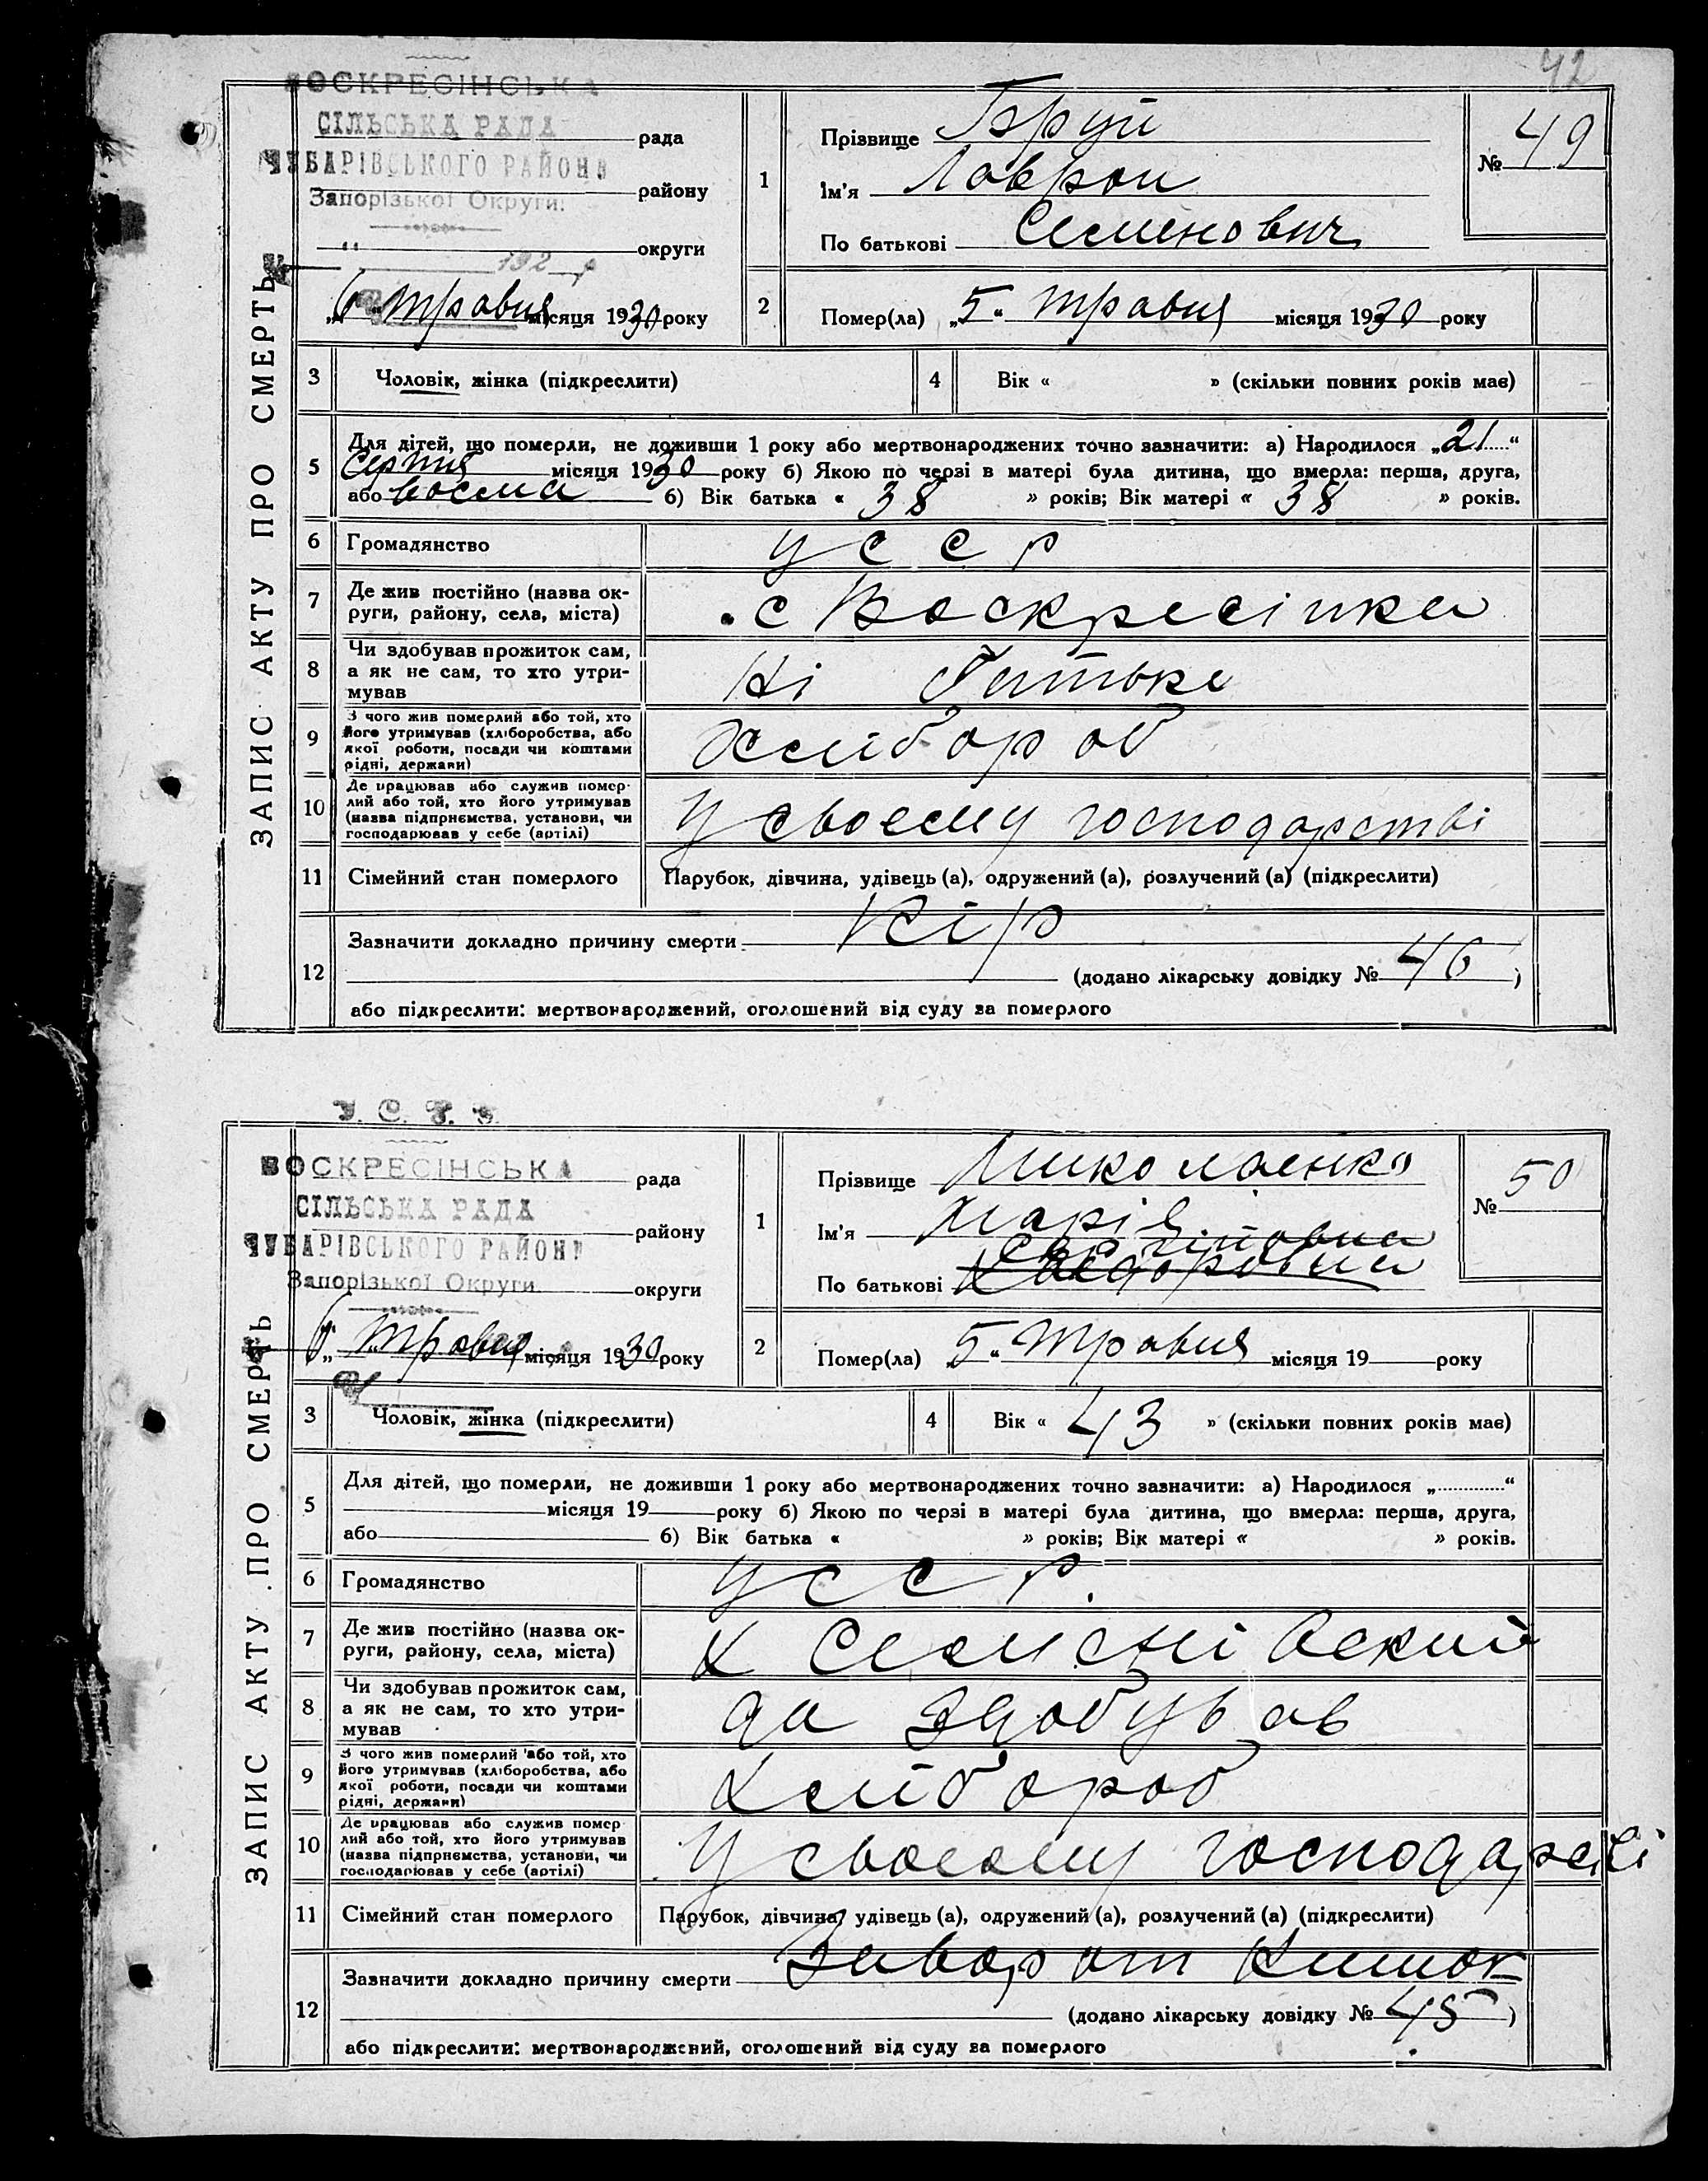 42
ВОСКРЕСІНСЬКА
СІЛЬСЬКА РАДА рада
ЧУБАРІВСЬКОГО РАЙОНУ
Запорізької Округи району
округи
192 р
„6“ травня місяця 1930 року
ЗАПИС АКТУ ПРО СМЕРТЬ
1
Прізвище Бруй
Ім'я Лаврон
По батькові Семенович
№ 49
2 Помер(ла) „5“ травня місяця 1930 року
3 Чоловік, жінка (підкреслити)
4 Вік « » (скільки повних років має)
5 Для дітей, що померли, не доживши 1 року або мертвонароджених точно зазначити: а) Народилося „21“
Серпня місяця 1930 року б) Якою по черзі в матері була дитина, що вмерла: перша, друга,
або восьма б) Вік батька « 38 » років; Вік матері « 38 » років.
6 Громадянство УССР
7 Де жив постійно (назва округи, району, села, міста) с Воскресінка
8 Чи здобував прожиток сам, а як не сам, то хто утримував Ні батьки
9 З чого жив померлий або той, хто його утримував (хліборобства, або якої роботи, посади чи коштами рідні, держави) Хлібороб
10 Де працював або служив померлий або той, хто його утримував (назва підприємства, установи, чи господарював у себе (артілі) У своему господарстві
11 Сімейний стан померлого Парубок, дівчина, удівець (а), одружений (а), розлучений (а) (підкреслити)
12 Зазначити докладно причину смерти Кір
(додано лікарську довідку № 46)
або підкреслити: мертвонароджений, оголошений від суду за померлого
У. С. Р. Р.
ВОСКРЕСІНСЬКА рада
СІЛЬСЬКА РАДА
району
ЧУБАРІВСЬКОГО РАЙОНУ
Запорізької Округи округи
„6“ травня місяця 1930 року
ЗАПИС АКТУ ПРО СМЕРТЬ
1
Прізвище Миколаенко
Ім'я Марія
По батькові
№ 50
2 Помер(ла) „5“ травня місяця 19 року
3 Чоловік, жінка (підкреслити)
4 Вік « 43 » (скільки повних років має)
5 Для дітей, що померли, не доживши 1 року або мертвонароджених точно зазначити: а) Народилося „ “
місяця 19 року б) Якою по черзі в матері була дитина, що вмерла: перша, друга,
або б) Вік батька « » років; Вік матері « » років.
6 Громадянство УССР.
7 Де жив постійно (назва округи, району, села, міста) Х Семені вский
8 Чи здобував прожиток сам, а як не сам, то хто утримував да здобував
9 З чого жив померлий або той, хто його утримував (хліборобства, або якої роботи, посади чи коштами рідні, держави) Хлібороб
10 Де працював або служив померлий або той, хто його утримував (назва підприємства, установи, чи господарював у себе (артілі) У своему
11 Сімейний стан померлого Парубок, дівчина, удівець (а), одружений (а), розлучений (а) (підкреслити)
12 Зазначити докладно причину смерти Заворот Кишок
(додано лікарську довідку № 45)
або підкреслити: мертвонароджений, оголошений від суду за померлого